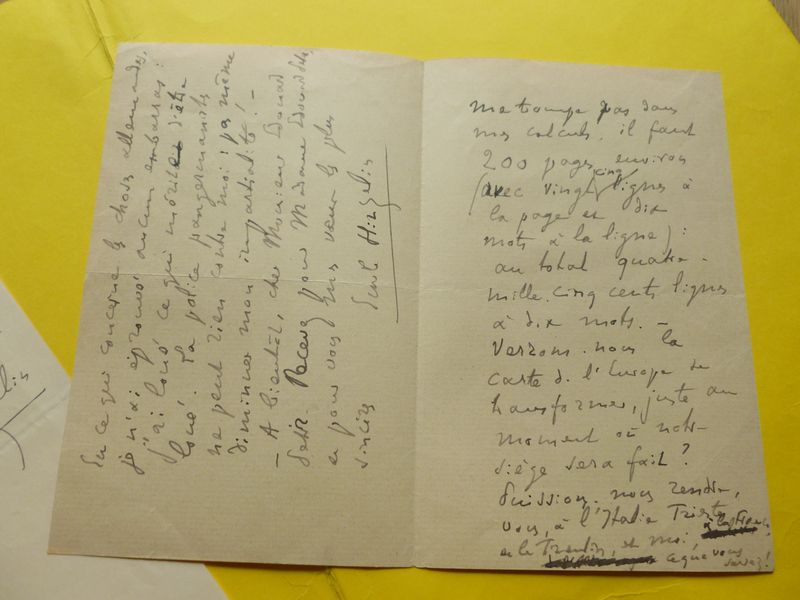 me trompe pas dans
mes calculs, il faut
200 pages environ
(avec vingt cinq lignes à
la page et dix
mots à la ligne) :
au total quatre-
mille-cinq cents lignes
à dix mots. —
Verrons-nous la
carte de l'Europe se
transformer, juste au
moment où notre
siège sera fait ?
Puissions-nous rendre,
vous, à l'Italie Trieste
et le Trentin, et moi
ce que vous
savez !
En ce qui concerne les choses allemandes,
je n'ai éprouvé aucun embarras :
j'ai loué ce qui méritait d'être
loué. La police pangermaniste
ne peut rien contre moi : pas même
diminuer mon impartialité ! —
— A bientôt, cher Monsieur Edouard
Recevez pour Madame Edouard
et pour vous mes vœux les plus
sincères
Emile Hinzelin